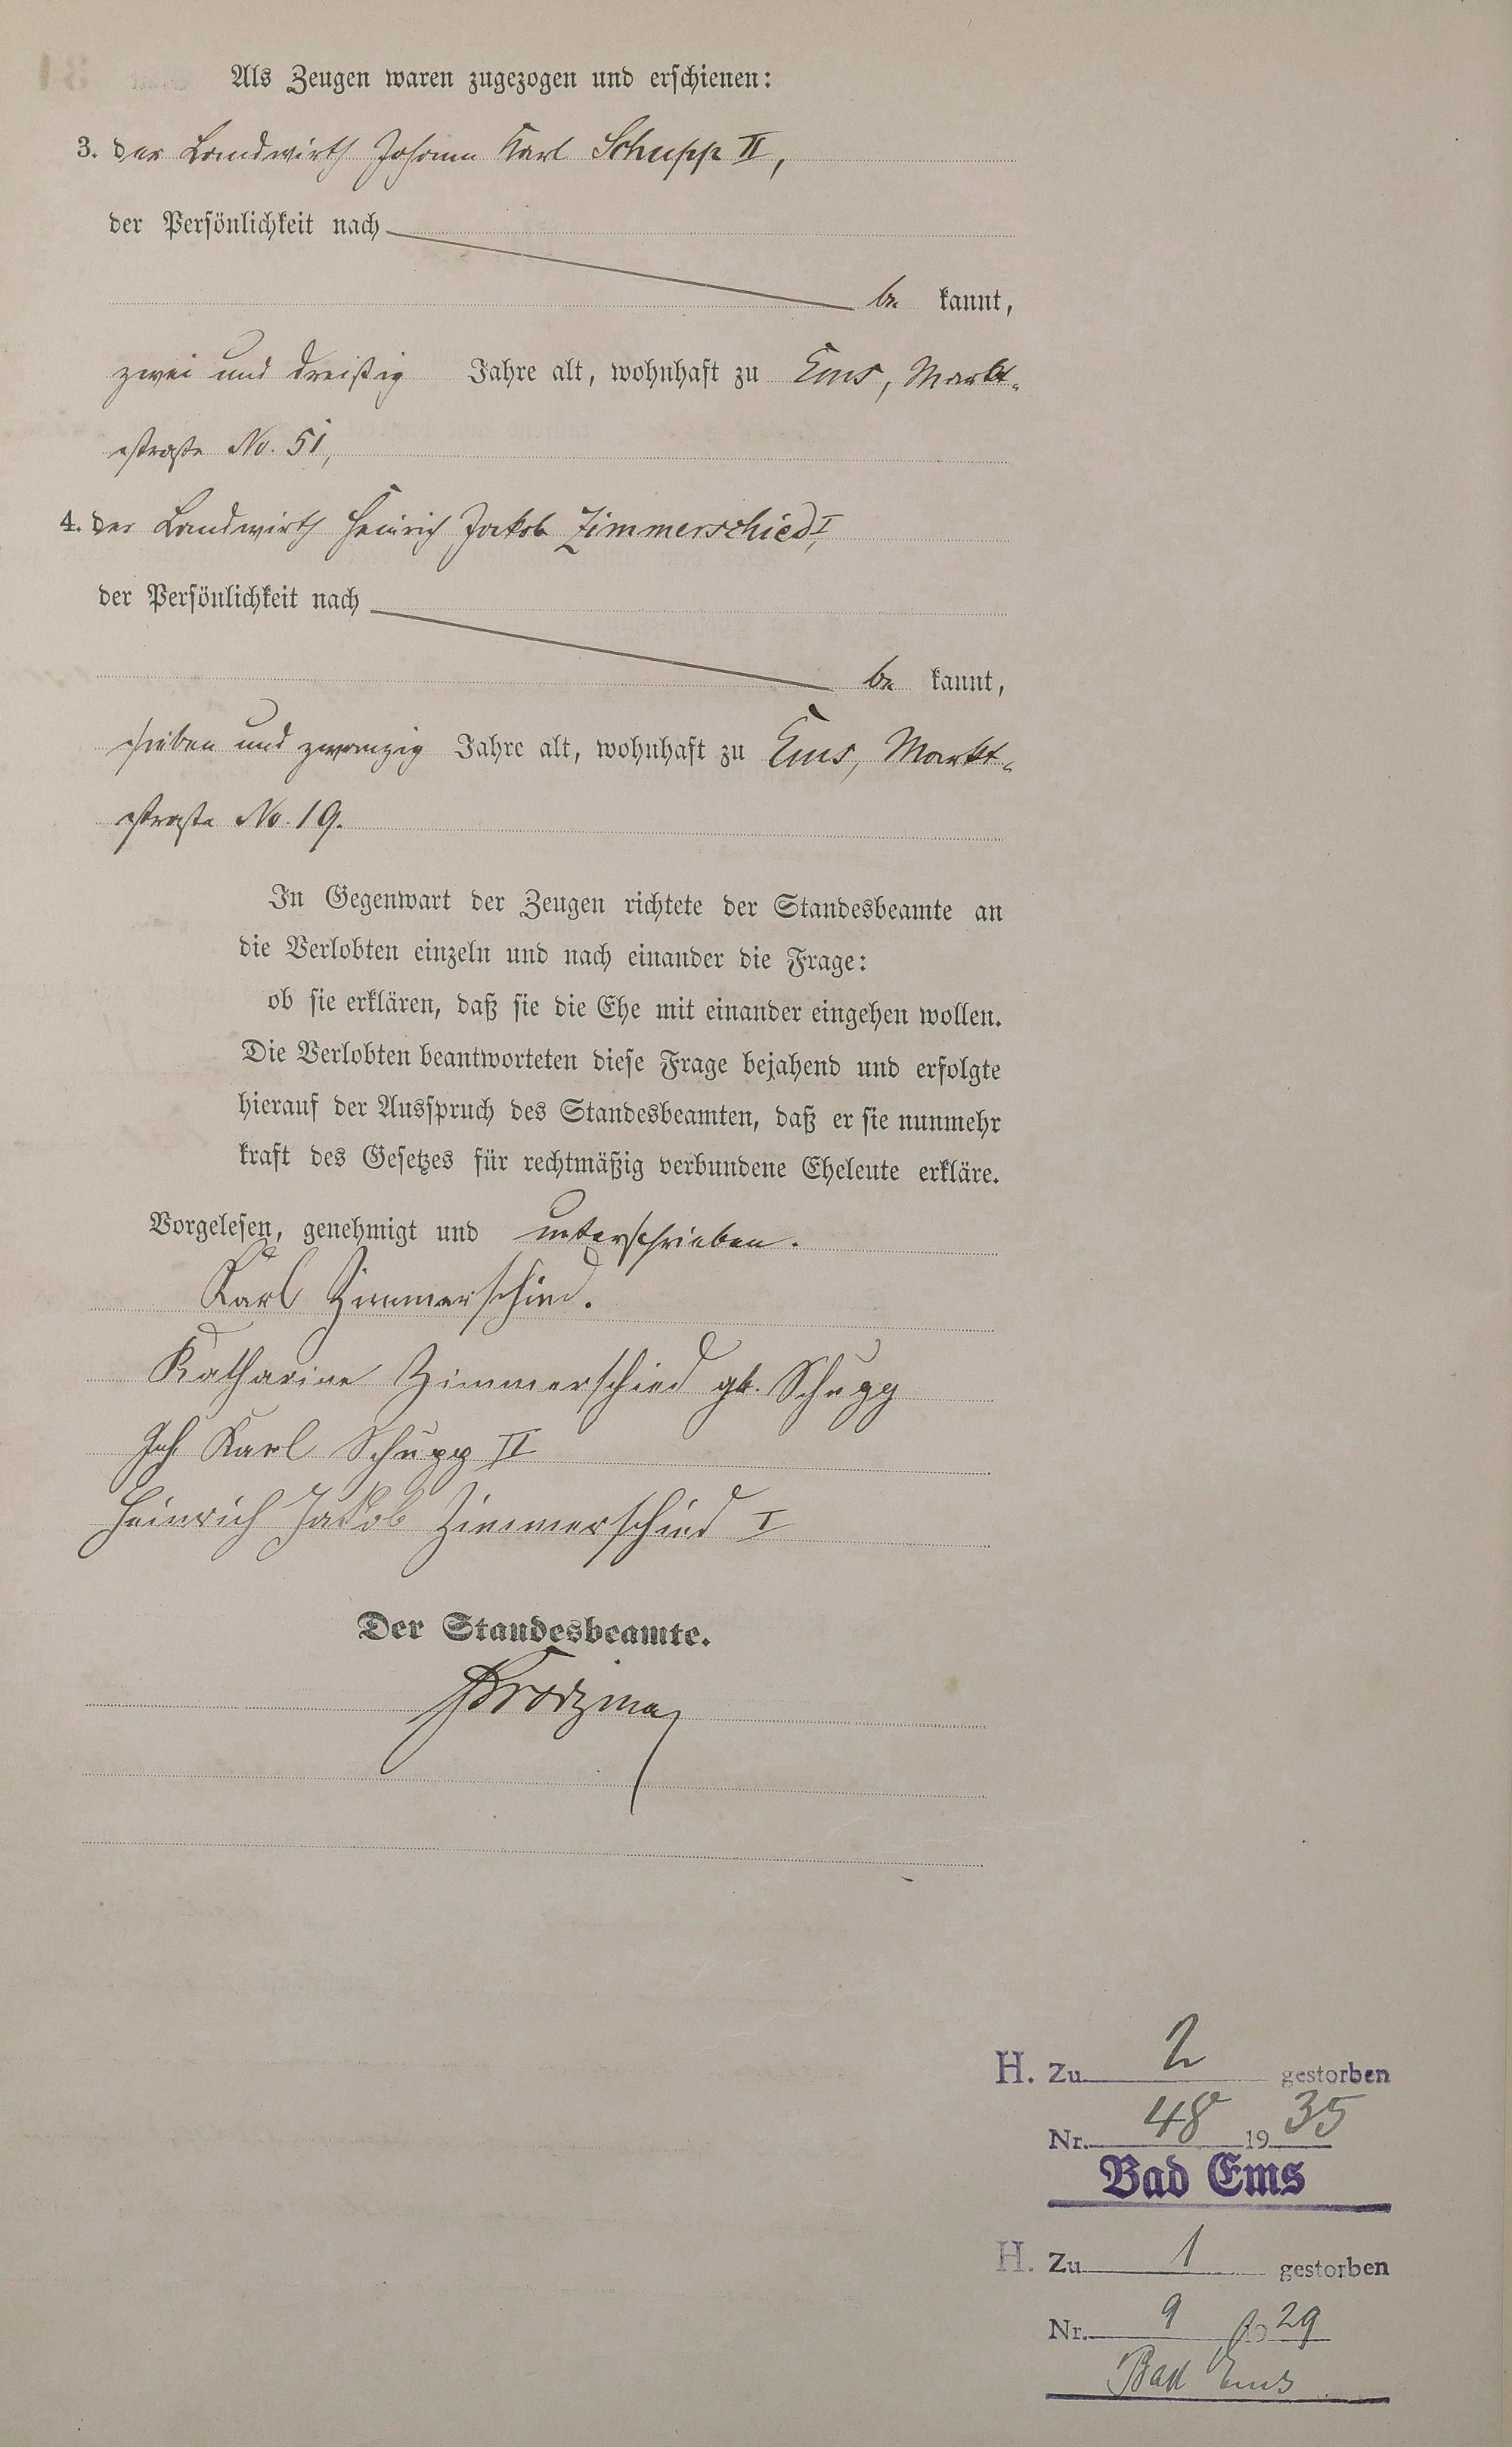 Als Zeugen waren zugezogen und erschienen:
3. der Landwirth Johann Karl Schupp II,
der Persönlichkeit nach
be kannt,
zwei und dreißig Jahre alt, wohnhaft zu Ems, Markt-
straße No. 51,
4. der Landwirth Heinrich Jakob Zimmerschied I,
der Persönlichkeit nach
be kannt,
sieben und zwanzig Jahre alt, wohnhaft zu Ems, Markt-
straße No. 19.
In Gegenwart der Zeugen richtete der Standesbeamte an
die Verlobten einzeln und nach einander die Frage:
ob sie erklären, daß sie die Ehe mit einander eingehen wollen.
Die Verlobten beantworteten diese Frage bejahend und erfolgte
hierauf der Ausspruch des Standesbeamten, daß er sie nunmehr
kraft des Gesetzes für rechtmäßig verbundene Eheleute erkläre.
Vorgelesen, genehmigt und unterschrieben.
Karl Zimmerschied.
Katharine Zimmerschied gb. Schupp
Joh. Karl Schupp II
Heinrich Jakob Zimmerschied I
Der Standesbeamte.
H. Zu 2 gestorben
Nr. 48 19 35
Bad Ems
H. Zu 1 gestorben
Nr. 9 19 29
Bad Ems